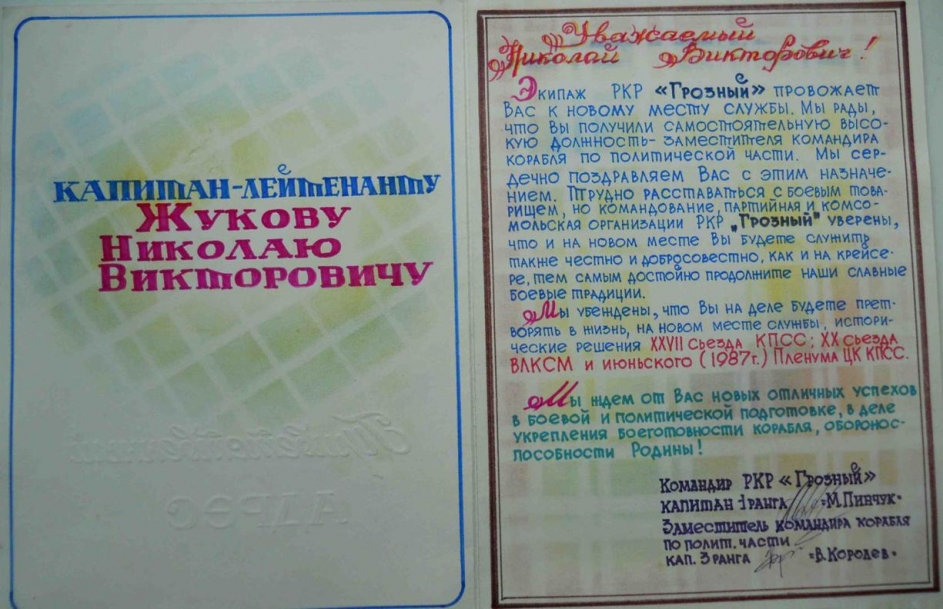 Капитан-лейтенанту
Жукову
Николаю
Викторовичу
Приветственный
Адрес
Уважаемый
Николай Викторович!
Экипаж РКР «Грозный» провожает
Вас к новому месту службы. Мы рады,
что Вы получили самостоятельную высо-
кую должность- заместителя командира
корабля по политической части. Мы сер-
дечно поздравляем Вас с этим назначе-
нием. Трудно расставаться с боевым това-
рищем, но командование, партийная и комсо-
мольская организации РКР „Грозный" уверены,
что и на новом месте Вы будете служить
также честно и добросовестно, как и на крейсе-
ре, тем самым достойно продолжите наши славные
боевые традиции.
Мы убеждены, что Вы на деле будете прет-
ворять в жизнь, на новом месте службы, истори-
ческие решения XXVII съезда КПСС; XX съезда
ВЛКСМ и июньского (1987г.) Пленума ЦК КПСС.
Мы ждем от Вас новых отличных успехов
в боевой и политической подготовке, в деле
укрепления боеготовности корабля, оборонос-
пособности Родины!
Командир РКР «Грозный»
капитан 1 ранга М. Пинчук
Заместитель командира корабля
по полит. части
кап. 3 ранга В. Королев